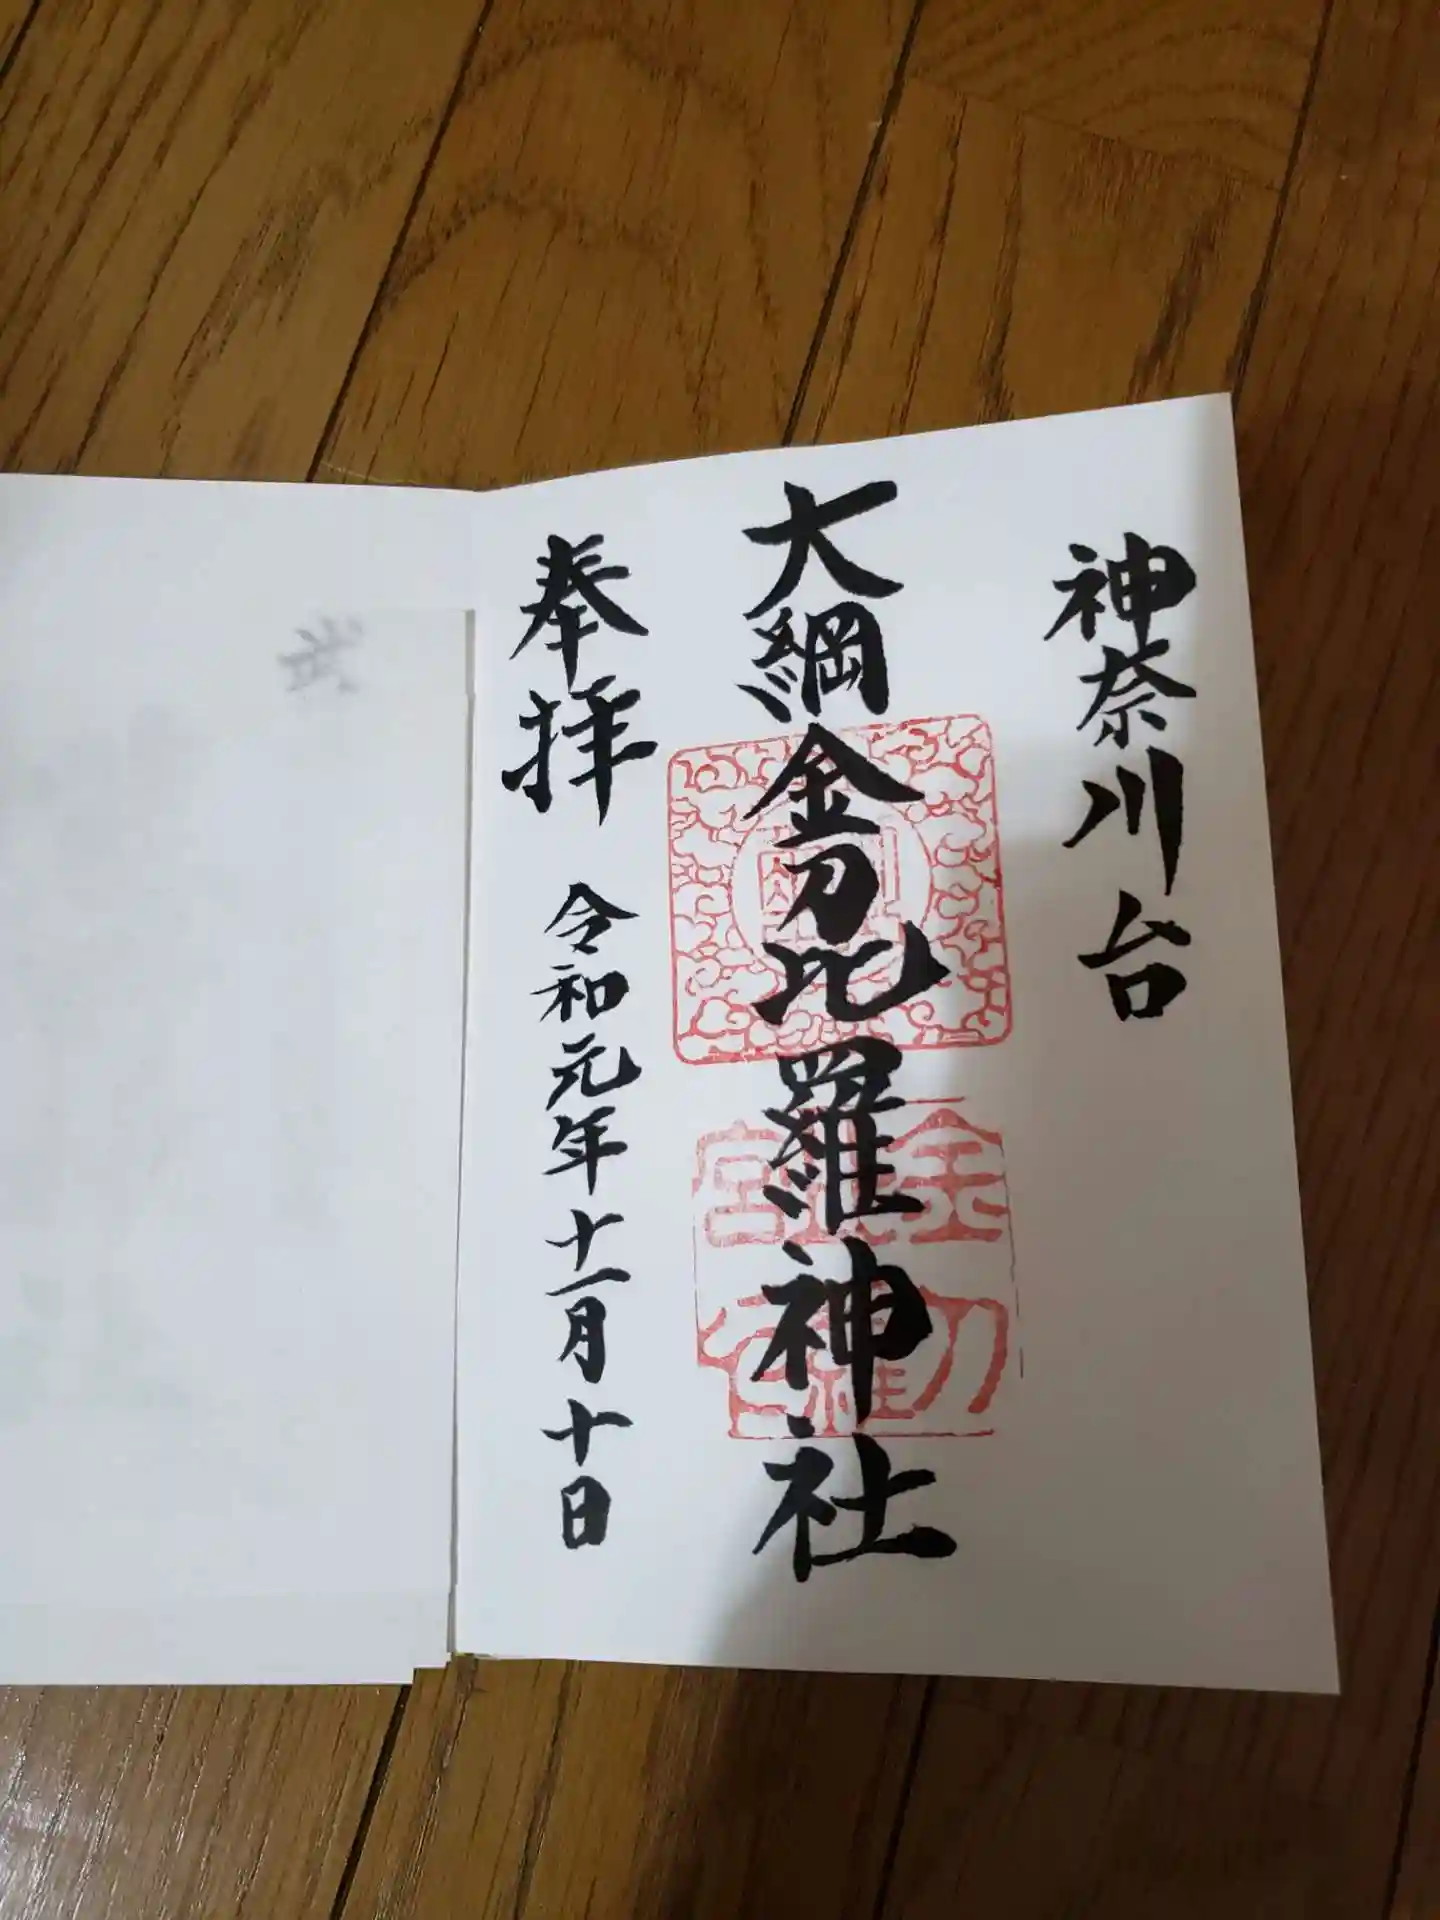 神奈川台
大綱金刀比羅神社
奉拝 令和元年十一月十日